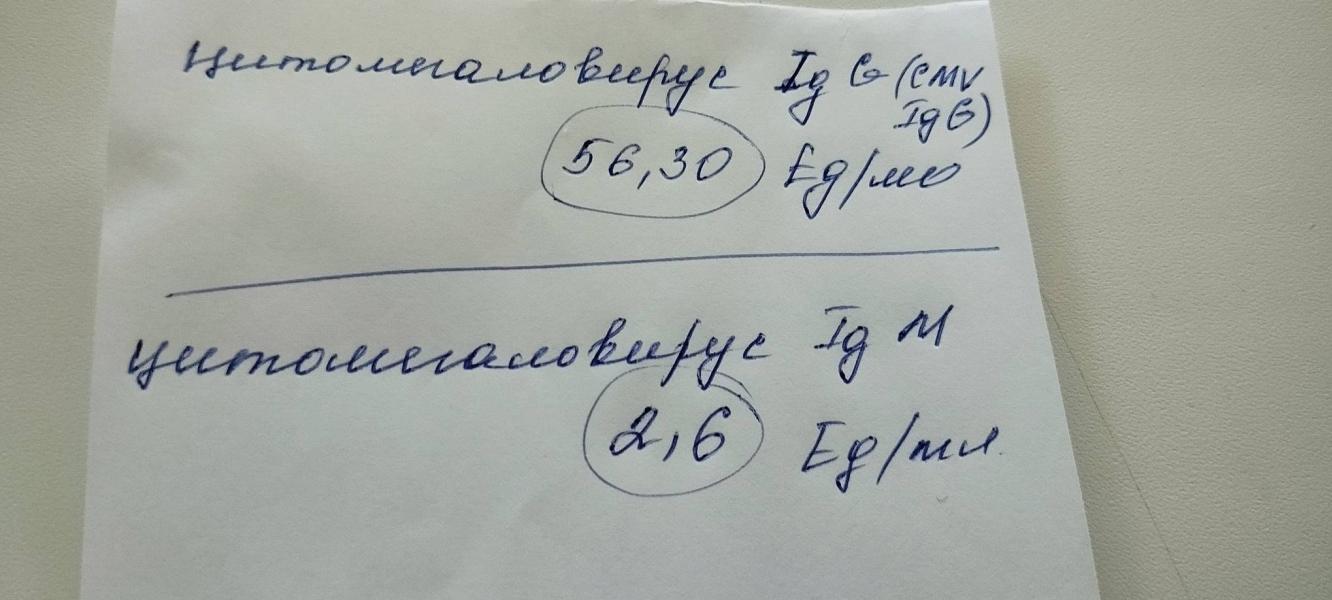 Цитомегаловирус Ig G (CMV
IgG)
56,30 Ед/мл
Цитомегаловирус Ig M
2,6 Ед/мл